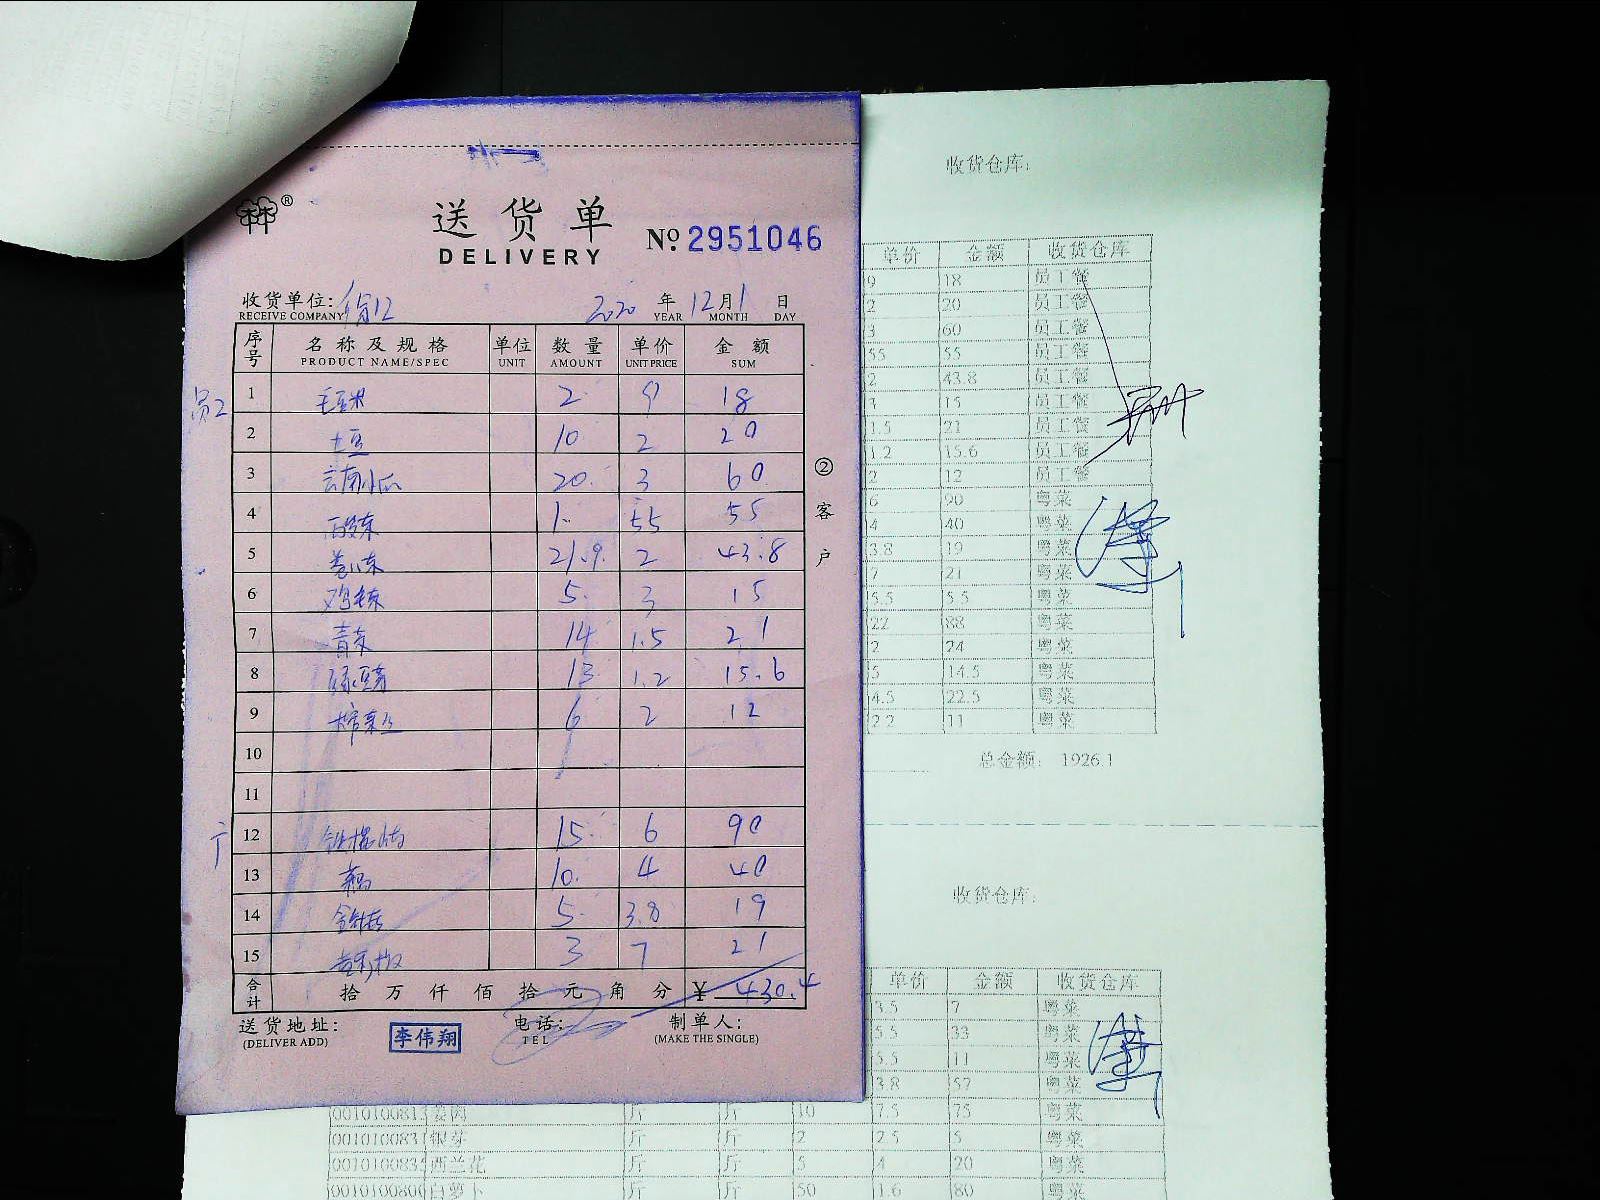 送货单
DELIVERY
№ 2951046
收货单位:
RECEIVE COMPANY
2020 年 12 月 1 日
YEAR MONTH DAY
序号 名称及规格 单位 数量 单价 金额
PRODUCT NAME/SPEC UNIT AMOUNT UNIT PRICE SUM
1 毛豆米 2 9 18
2 土豆 10 2 20
3 云南小瓜 20 3 60
4 酸菜 1 55 55
5 卷心菜 21.9 2 43.8
6 鸡毛菜 5 3 15
7 青菜 14 1.5 21
8 绿豆芽 13 1.2 15.6
9 榨菜丝 6 2 12
10
11
12 15 6 90
13 10 4 40
14 金针菇 5 3.8 19
15 3 7 21
合计 拾 万 仟 佰 拾 元 角 分 ¥ 430.4
送货地址:
(DELIVER ADD)
李伟翔
电话:
TEL
制单人:
(MAKE THE SINGLE)
② 客户
收货仓库:
单价 金额 收货仓库
9 18 员工餐
2 20 员工餐
3 60 员工餐
55 55 员工餐
2 43.8 员工餐
3 15 员工餐
1.5 21 员工餐
1.2 15.6 员工餐
2 12 员工餐
6 90 粤菜
4 40 粤菜
3.8 19 粤菜
7 21 粤菜
5.5 5.5 粤菜
22 88 粤菜
2 24 粤菜
5 14.5 粤菜
4.5 22.5 粤菜
2.2 11 粤菜
总金额: 1926.1
收货仓库:
单价 金额 收货仓库
3.5 7 粤菜
5.5 33 粤菜
5.5 11 粤菜
3.8 57 粤菜
姜肉 斤 斤 10 7.5 75 粤菜
银芽 斤 斤 2 2.5 5 粤菜
西兰花 斤 斤 5 4 20 粤菜
白萝卜 斤 斤 50 1.6 80 粤菜